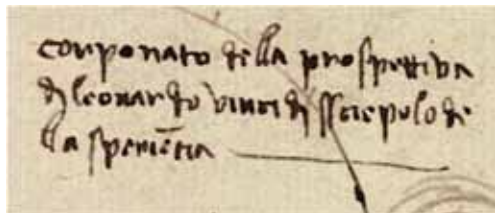 corponato della prospettiva
di leonardo vinci di ssciepolo de
lla sperientia